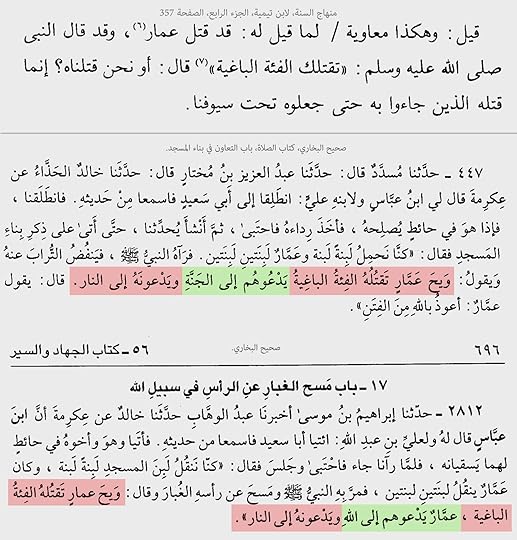 منهاج السنة، لابن تيمية، الجزء الرابع، الصفحة 357
قيل: وهكذا معاوية / لما قيل له: قد قتل عمار(٦)، وقد قال النبى
صلى الله عليه وسلم: «تقتلك الفئة الباغية»(٧) قال: أو نحن قتلناه؟ إنما
قتله الذين جاءوا به حتى جعلوه تحت سيوفنا.
صحيح البخاري، كتاب الصلاة، باب التعاون في بناء المسجد.
٤٤٧ ـ حدَّثَنا مُسدَّدٌ قال: حدَّثَنا عبدُ العزيز بنُ مُختارٍ قال: حدَّثَنا خالدٌ الحَذَّاءُ عن
عِكرِمةَ قال لي ابنُ عبَّاسٍ ولابنهِ عليٍّ: انطلِقا إلى أبي سَعيدٍ فاسمعا مِنْ حَديثهِ. فانطَلَقنا،
فإذا هوَ في حائطٍ يُصلِحهُ، فأخَذَ رِداءهُ فاحتبىٰ، ثمَّ أنْشأَ يُحدِّثنا، حتَّى أتىٰ على ذِكرِ بِناءِ
المَسجدِ فقال: «كنَّا نَحمِلُ لَبِنةً لَبنة وعَمَّارٌ لَبِنَتينِ لَبِنتين. فرَآهُ النبيُّ ﷺ، فيَنفُضُ التُّرابَ عنهُ
ويَقولُ: وَيحَ عَمَّارٍ تَقتُلُهُ الفِئةُ الباغيةُ يَدْعُوهُم إلى الجَنَّةِ ويَدْعونَهُ إلى النار. قال: يقول
عمَّارٌ: أعوذُ باللهِ مِنَ الفِتَنِ».
٦٩٦
صحيح البخاري.
٥٦ ـ كتاب الجهاد والسير
١٧ ـ باب مَسحِ الغبارِ عنِ الرأسِ في سبيلِ الله
٢٨١٢ ـ حدّثنا إبراهيمُ بنُ موسىٰ أخبرنا عبدُ الوهّابِ حدَّثَنا خالدٌ عن عِكرِمةَ أنَّ ابنَ
عبَّاسٍ قال لهُ ولعليِّ بنِ عبدِ اللهِ: ائتيا أبا سعيدٍ فاسمعا من حديثهِ. فأتَيا وهوَ وأخوهُ في حائطٍ
لهما يَسقيانه، فلمَّا رآنا جاء فاحْتبىٰ وجَلسَ فقال: «كنّا نَنقُلُ لَبِنَ المسجدِ لَبِنةً لَبِنة، وكان
عَمَّارٌ ينقُلُ لبنَتينِ لبنتين، فمرَّ بهِ النبيُّ ﷺ ومَسحَ عن رأسهِ الغُبارَ وقال: وَيحَ عمارٍ تَقتُلُهُ الفِئةُ
الباغية، عمَّارٌ يَدْعوهم إلى اللهِ ويَدْعونهُ إلى النار».